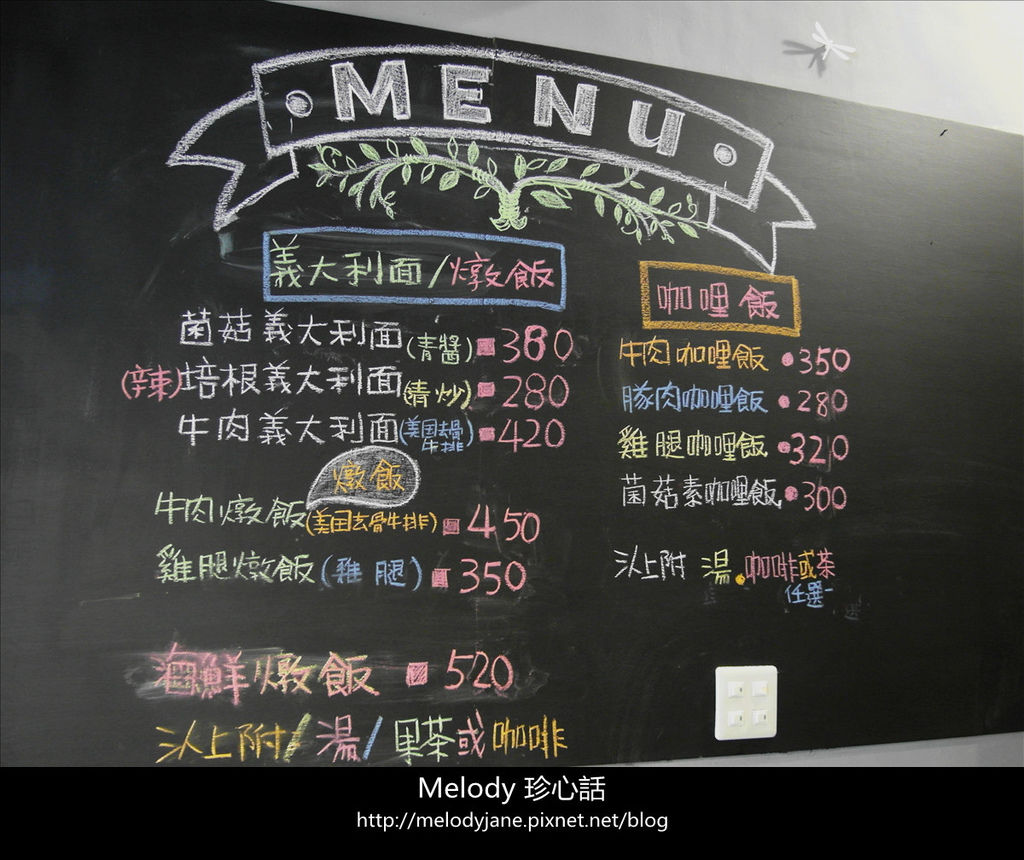 MENU
義大利面/燉飯
菌菇義大利面(青醬)■380
(辣)培根義大利面(清炒)■280
牛肉義大利面(美国去骨牛排)■420
燉飯
牛肉燉飯(美国去骨牛排)■450
雞腿燉飯(雞腿)■350
海鮮燉飯■520
以上附/湯/果茶或咖啡
咖哩飯
牛肉咖哩飯●350
豚肉咖哩飯●280
雞腿咖哩飯●320
菌菇素咖哩飯●300
以上附 湯.咖啡或茶
任選一
Melody 珍心話
http://melodyjane.pixnet.net/blog